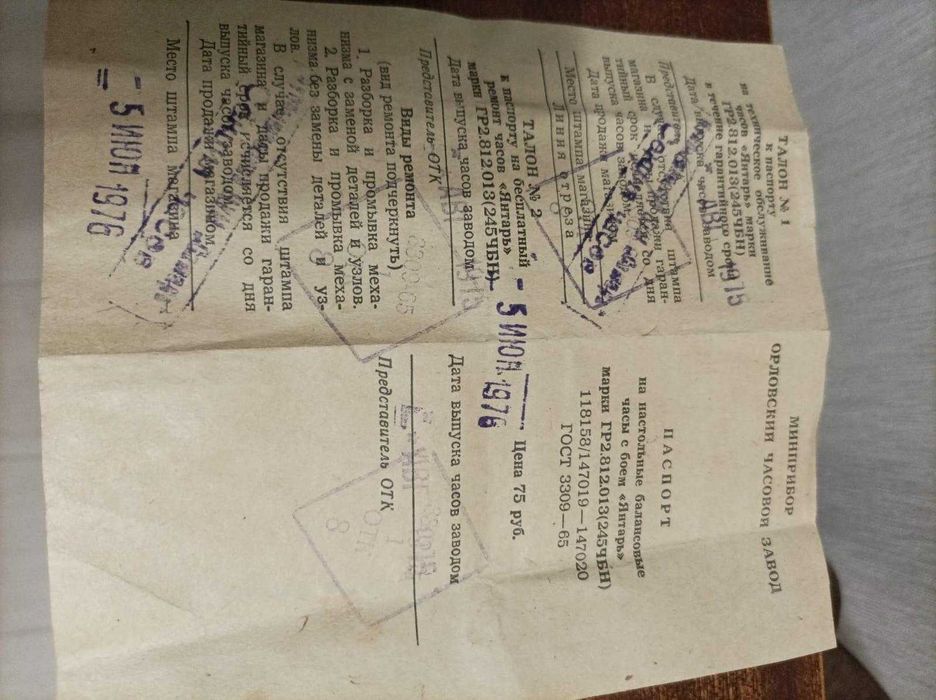 МИНПРИБОР
ОРЛОВСКИЙ ЧАСОВОЙ ЗАВОД
ПАСПОРТ
на настольные балансовые
часы с боем «Янтарь»
марки ГР2.812.013(245ЧБН)
118158/147019—147020
ГОСТ 3309—65
Цена 75 руб.
Дата выпуска часов заводом
Представитель ОТК
ТАЛОН № 1
к паспорту
на техническое обслуживание
часов «Янтарь» марки
ГР2.812.013(245ЧБН)
в течение гарантийного срока
Дата выпуска часов заводом
АВГ 1975
Представитель
В случае отсутствия штампа
магазина и даты продажи гаран-
тийный срок исчисляется со дня
выпуска часов заводом.
Дата продажи магазином
Место штампа магазина
Линия отреза
ТАЛОН № 2
к паспорту на бесплатный
ремонт часов «Янтарь»
марки ГР2.812.013(245ЧБН)
- 5 ИЮЛ 1976
Дата выпуска часов заводом
АВГ 1975
Представитель ОТК
Виды ремонта
(вид ремонта подчеркнуть)
1. Разборка и промывка меха-
низма с заменой деталей и узлов.
2. Разборка и промывка меха-
низма без замены деталей и уз-
лов.
В случае отсутствия штампа
магазина и даты продажи гаран-
тийный срок исчисляется со дня
выпуска часов заводом.
Дата продажи магазином
Место штампа магазина
- 5 ИЮЛ 1976